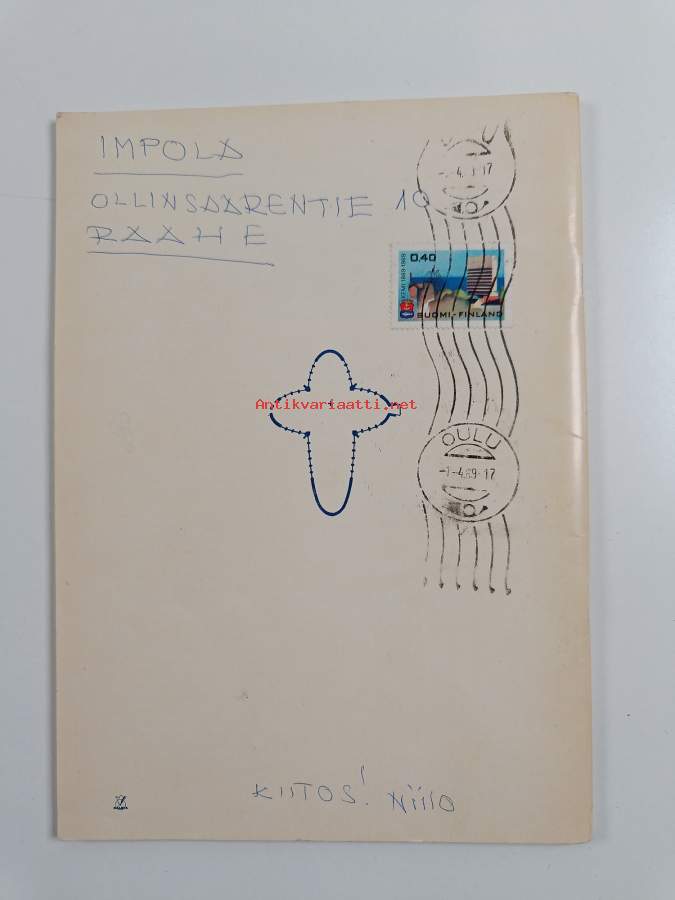 IMPOLA
OLLINSAARENTIE 10
RAAHE
-1.4. 17
0,40
KEMI 1869-1969
SUOMI-FINLAND
Antikvariaatti.net
OULU
-1-4.69-17
KIITOS! Niilo